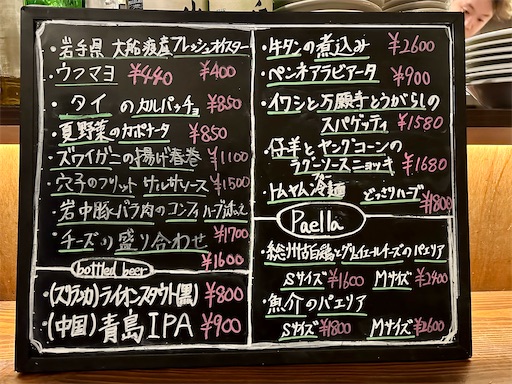 ・岩手県 大船渡産フレッシュオイスター
¥400
ウフマヨ ¥440
・タイのカルパッチョ ¥850
・夏野菜のカポナータ ¥850
・ズワイガニの揚げ春巻 ¥1100
・穴子のフリット ケルルソース ¥1500
・岩中豚バラ肉のコンフィ ハーブ添え
¥1700
・チーズの盛り合わせ
¥1600
bottled beer
・(スリランカ)ライオンスタウト(黒) ¥800
・(中国)青島IPA ¥900
・牛タンの煮込み ¥2600
・ペンネアラビアータ ¥900
・イワシと万願寺とうがらしの
スパゲッティ ¥1580
・仔羊とヤングコーンの
ラグーソースニョッキ ¥1680
・トムヤム冷麺 どっさりハーブ ¥1800
Paella
・総州古白鶏とグリュイエールチーズのパエリア
Sサイズ ¥1600 Mサイズ ¥2400
・魚介のパエリア
Sサイズ ¥1800 Mサイズ ¥2600